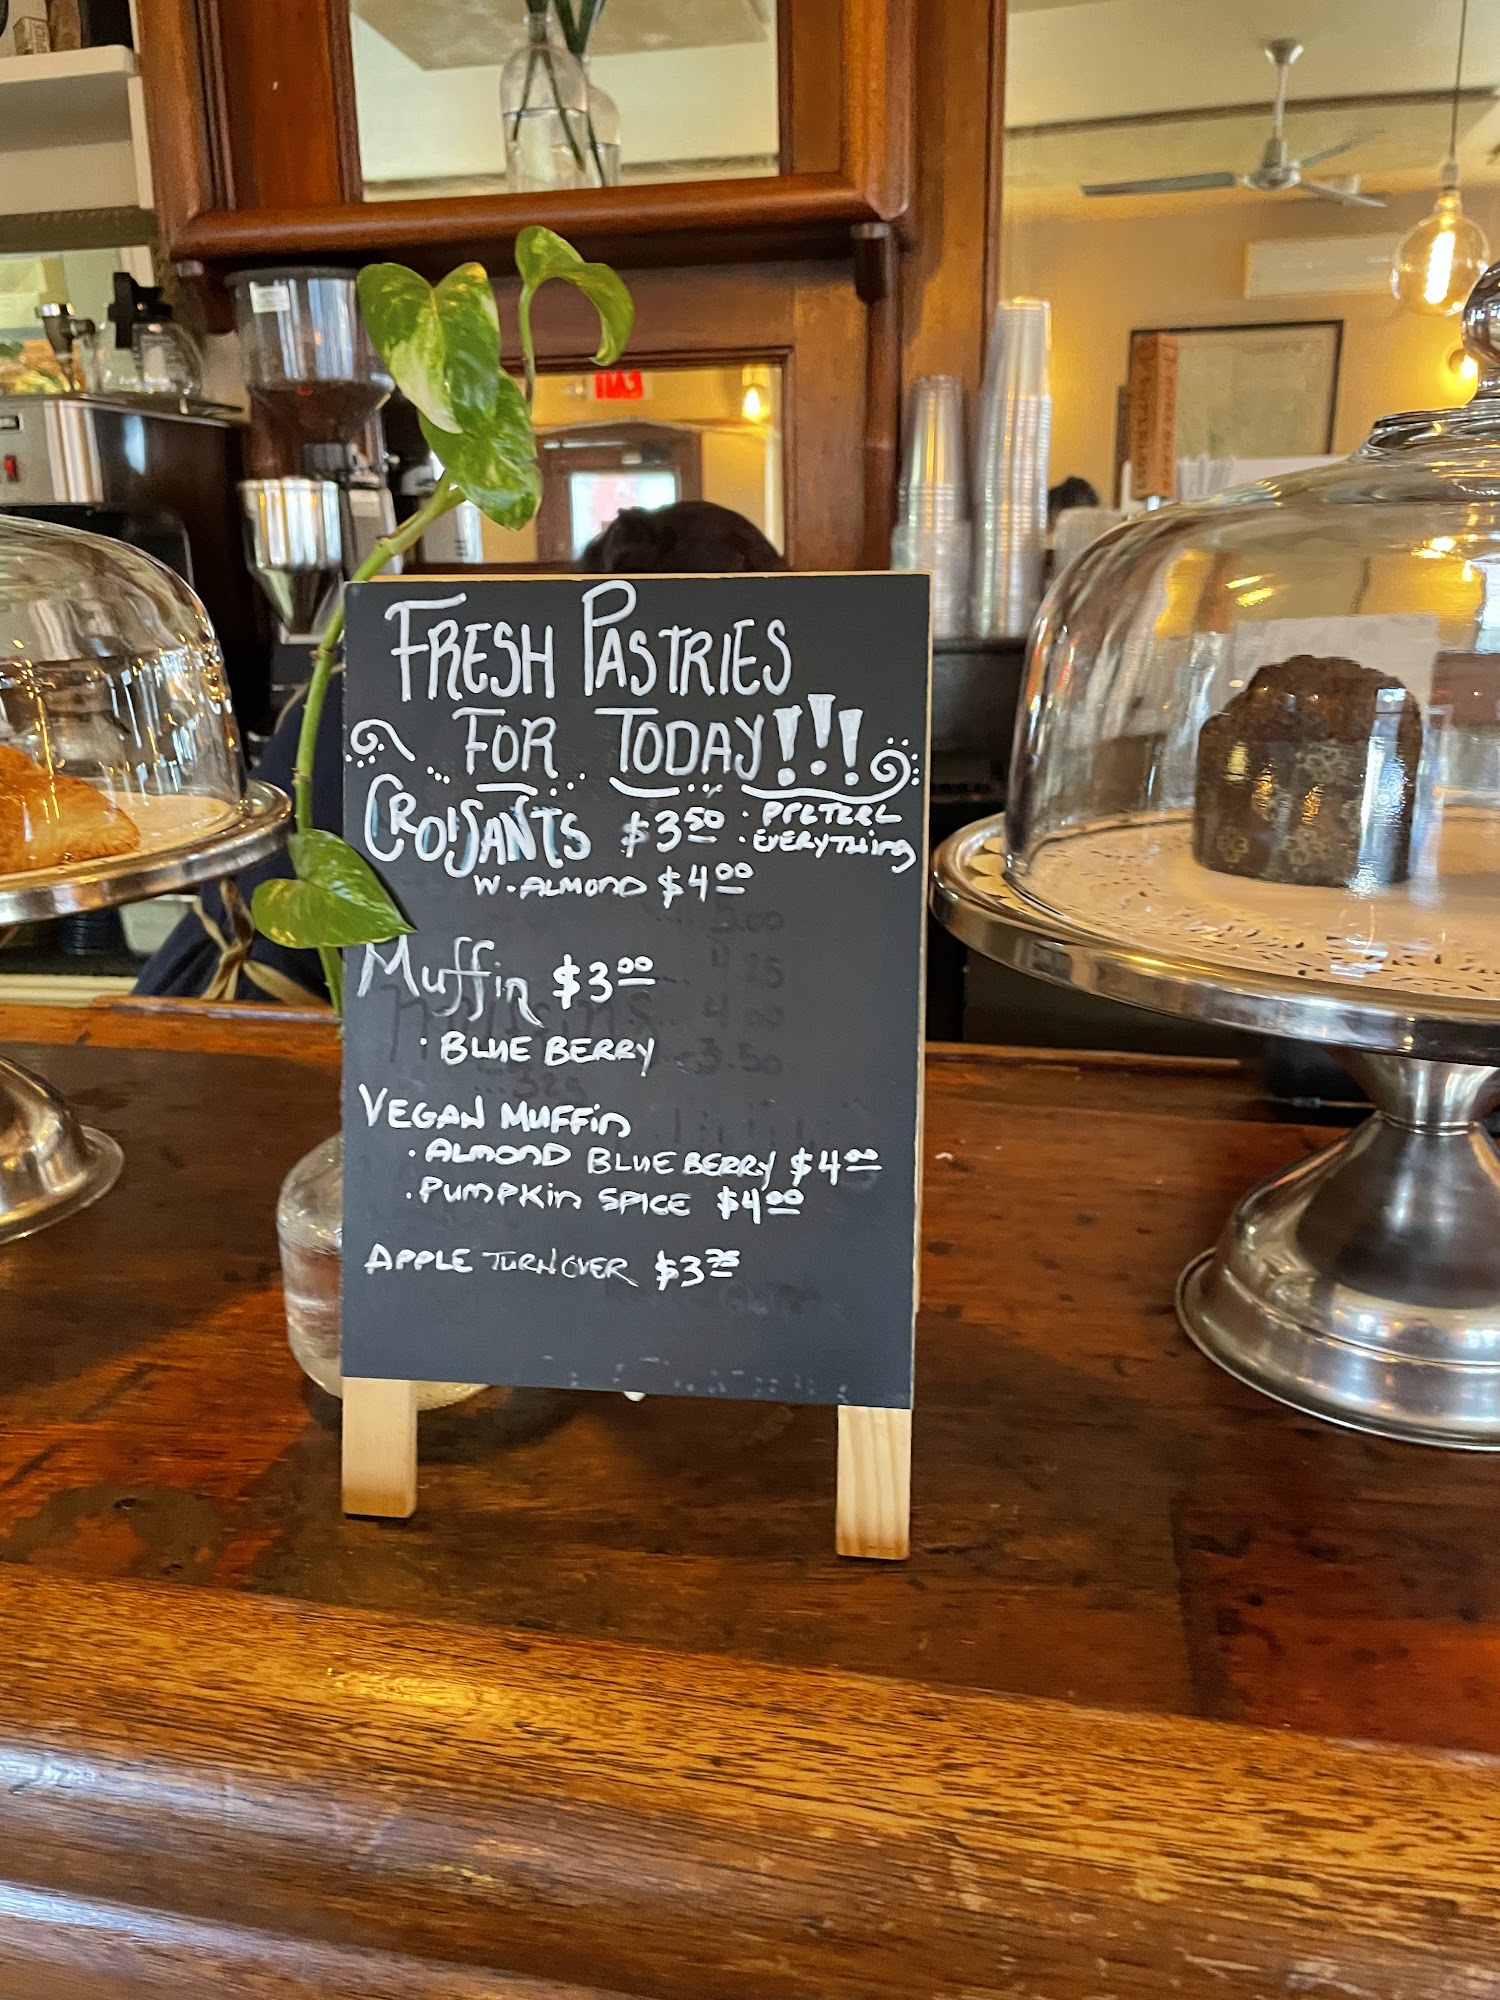 FRESH PASTRIES
FOR TODAY!!!
CROISANTS $3.50 · PRETZEL
· EVERYTHING
W. ALMOND $4.00
Muffin $3.00
· BLUE BERRY
VEGAN MUFFIN
· ALMOND BLUE BERRY $4.00
· PUMPKIN SPICE $4.00
APPLE TURNOVER $3.75